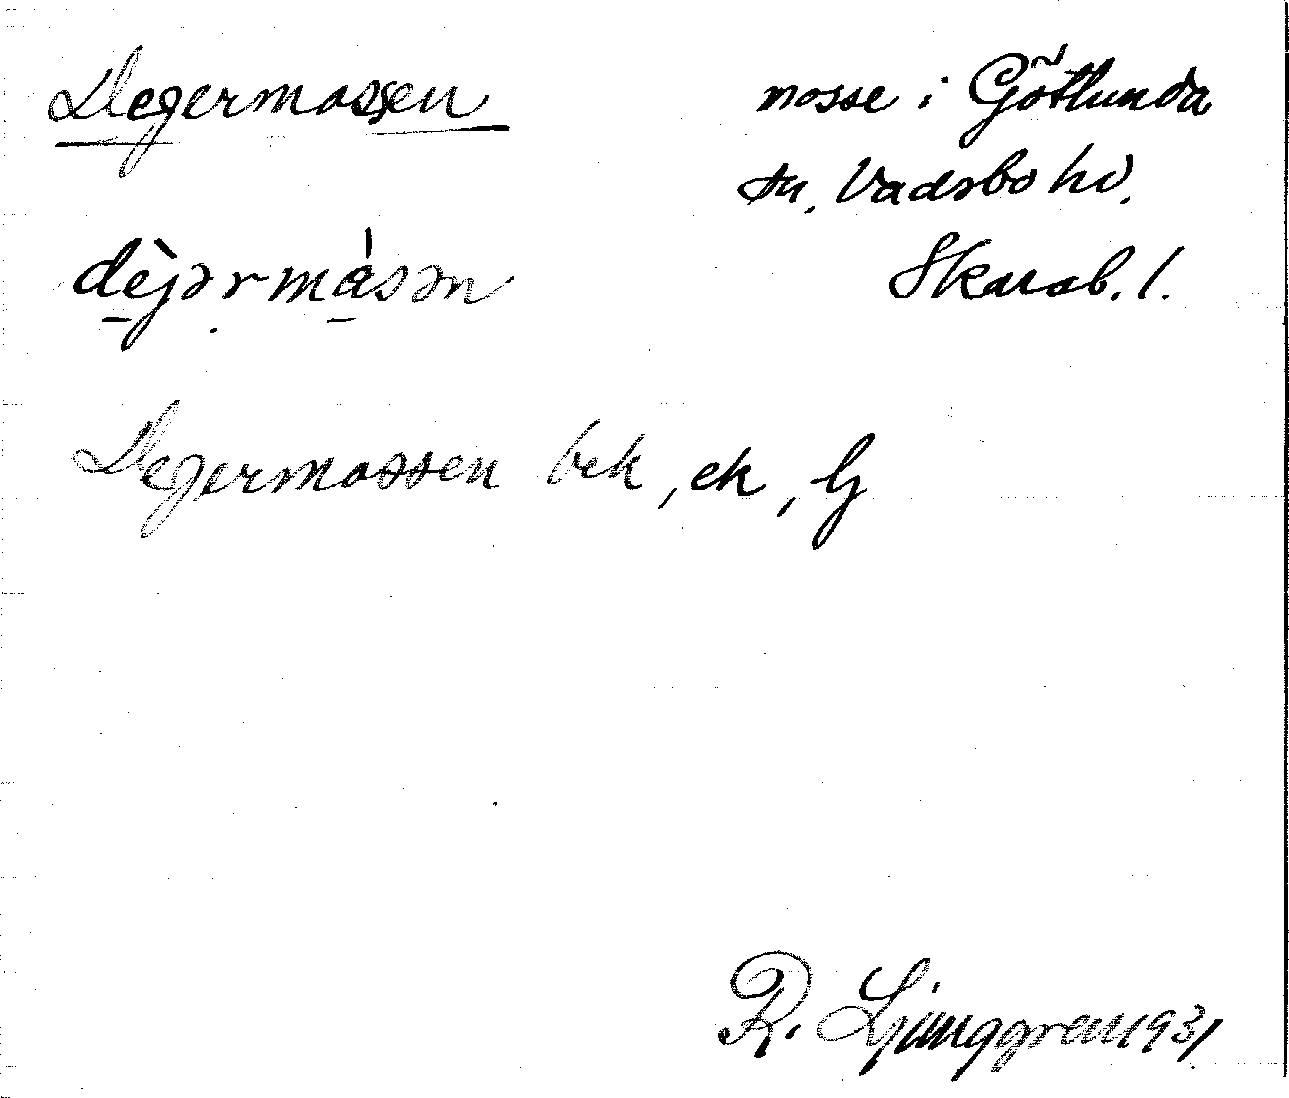 Degermossen
mosse i Götlunda
sn. Vadsbo hd.
Skarab. l.
dèjərmåsən
Degermossen bek, ek, Lj
R. Ljunggren 1931